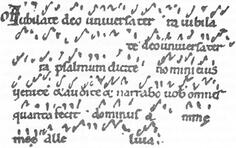 Jubilate deo unuversater ra iubila
te deo unuversater
ra psalmum dicite nomini eius
venite & audite & narrabo uob omnes
quanta fecit dominus a mme
meg alle luia